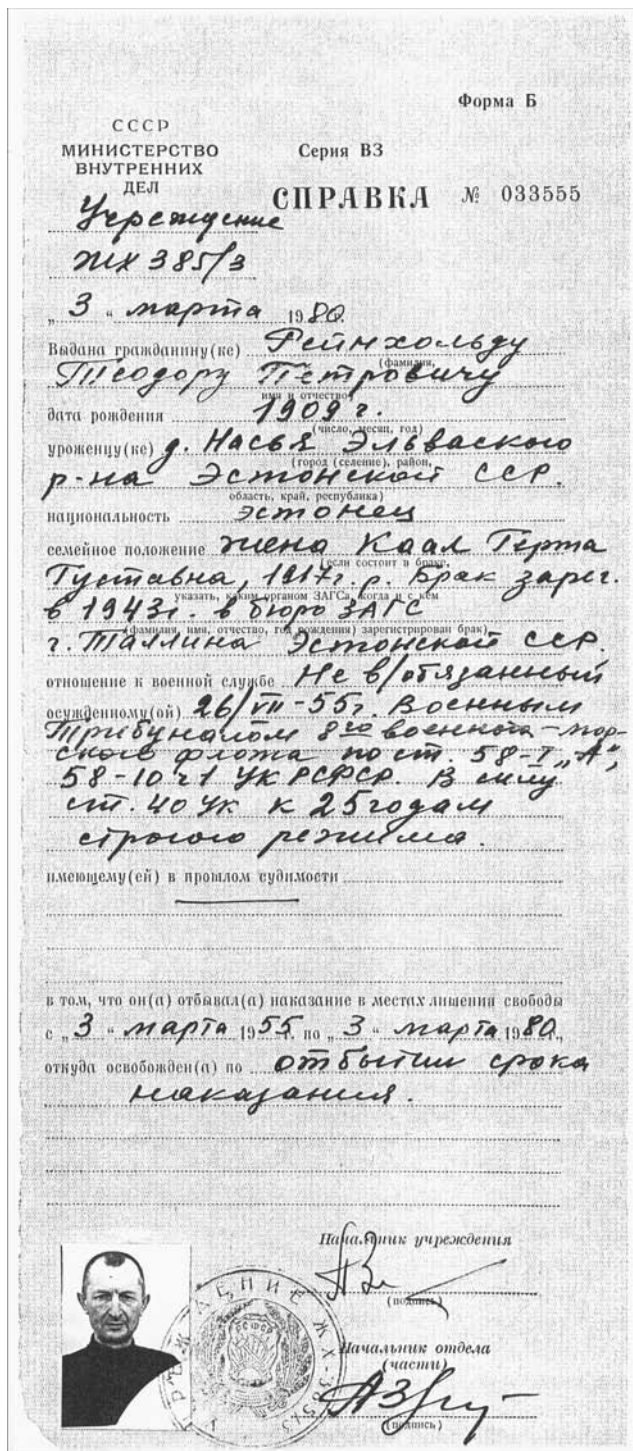 Форма Б
СССР
МИНИСТЕРСТВО
ВНУТРЕННИХ
ДЕЛ
Серия ВЗ
СПРАВКА № 033555
Учреждение
ЖХ 385/3
„ 3 “ марта 1980
Выдана гражданину(ке) Рейнхольду
(фамилия,
Теодору Петровичу
имя и отчество)
дата рождения 1909 г.
(число, месяц, год)
уроженцу(ке) д. Насья Эльваского
(город (селение), район,
р-на Эстонской ССР.
область, край, республика)
национальность эстонец
семейное положение жена Каал Герта
(если состоит в браке,
Густавна, 1917г. р. Брак зарег.
указать, каким органом ЗАГСа, когда и с кем
в 1943г. в бюро ЗАГС
(фамилия, имя, отчество, год рождения) зарегистрирован брак)
г. Таллина Эстонской ССР.
отношение к военной службе Не в/обязанный
осужденному(ой) 26/VII-55г. Военным
трибуналом 8го военного-мор-
ского флота по ст. 58-I „А“,
58-10 ч1 УК РСФСР. В силу
ст. 40 УК к 25 годам
строгого режима.
имеющему(ей) в прошлом судимости
в том, что он(а) отбывал(а) наказание в местах лишения свободы
с „ 3 “ марта 1955 г. по „ 3 “ марта 1980 г.,
откуда освобожден(а) по отбытии срока
наказания.
Начальник учреждения
(подпись)
Начальник отдела
(части)
(подпись)
РСФСР
УЧРЕЖДЕНИЕ ЖХ-385